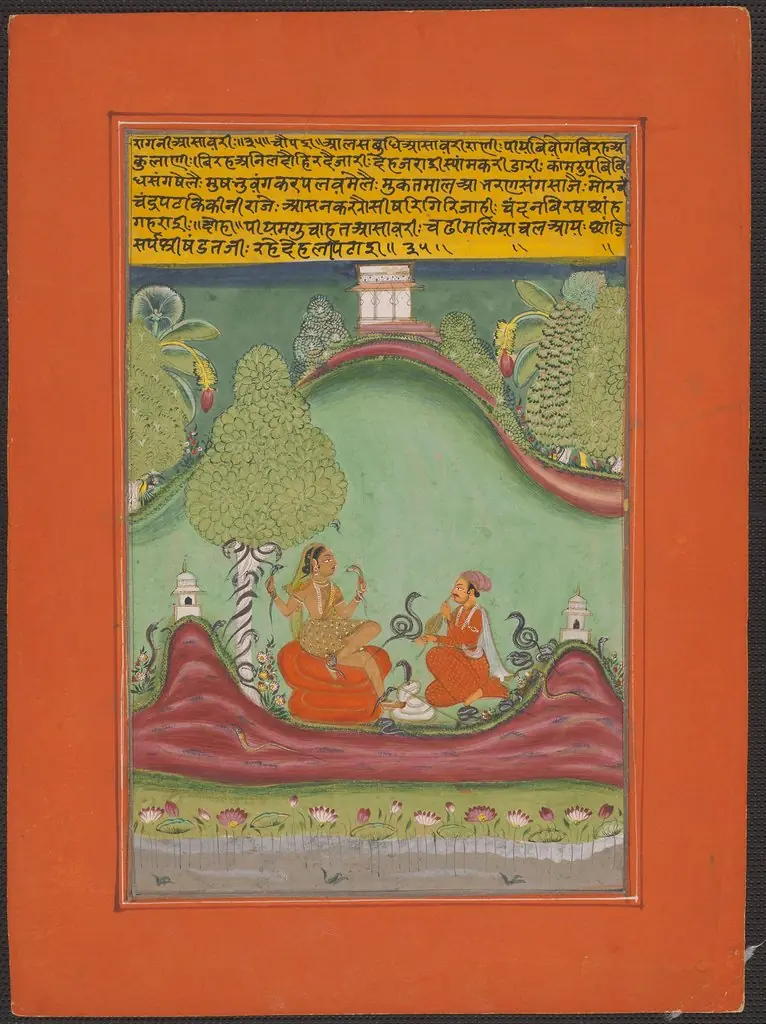 रागनी आसावरी॥३५॥ चौपई॥ आलस बुधि आसावरी राणी: पीय बिवोग बिरह अ
कुलाणी: बिरह अनिल दौहिरदै जारी: देह जराई स्याम करी डारी: काम रुप बिबि
ध संग षेलै मुष भुवंग कर पलव मेलै: मुकतमाल आभरण संग साजै: मोर चं
चंद्र पट किंकीनी राजै: आसन कर सीषरि गिरि जाही: चंदन बिरष छांह
गहराई:॥दोहा॥ पीय मग चाहत आसावरी: चढी मलिया चल आय: छांडि
सर्प श्रीषंड तजी: रहे देह लपिटाई॥ ३५॥ ॥ ॥